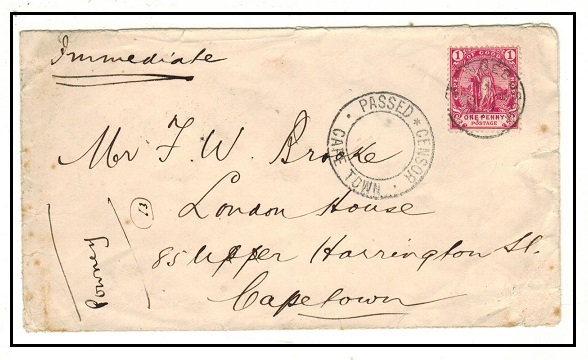 Immediate
1 OF GOO 1
ONE PENNY
POSTAGE
PASSED * CENSOR
CAPE TOWN
Mr F. W. Brooke
London House
85 Upper Harrington St.
Capetown